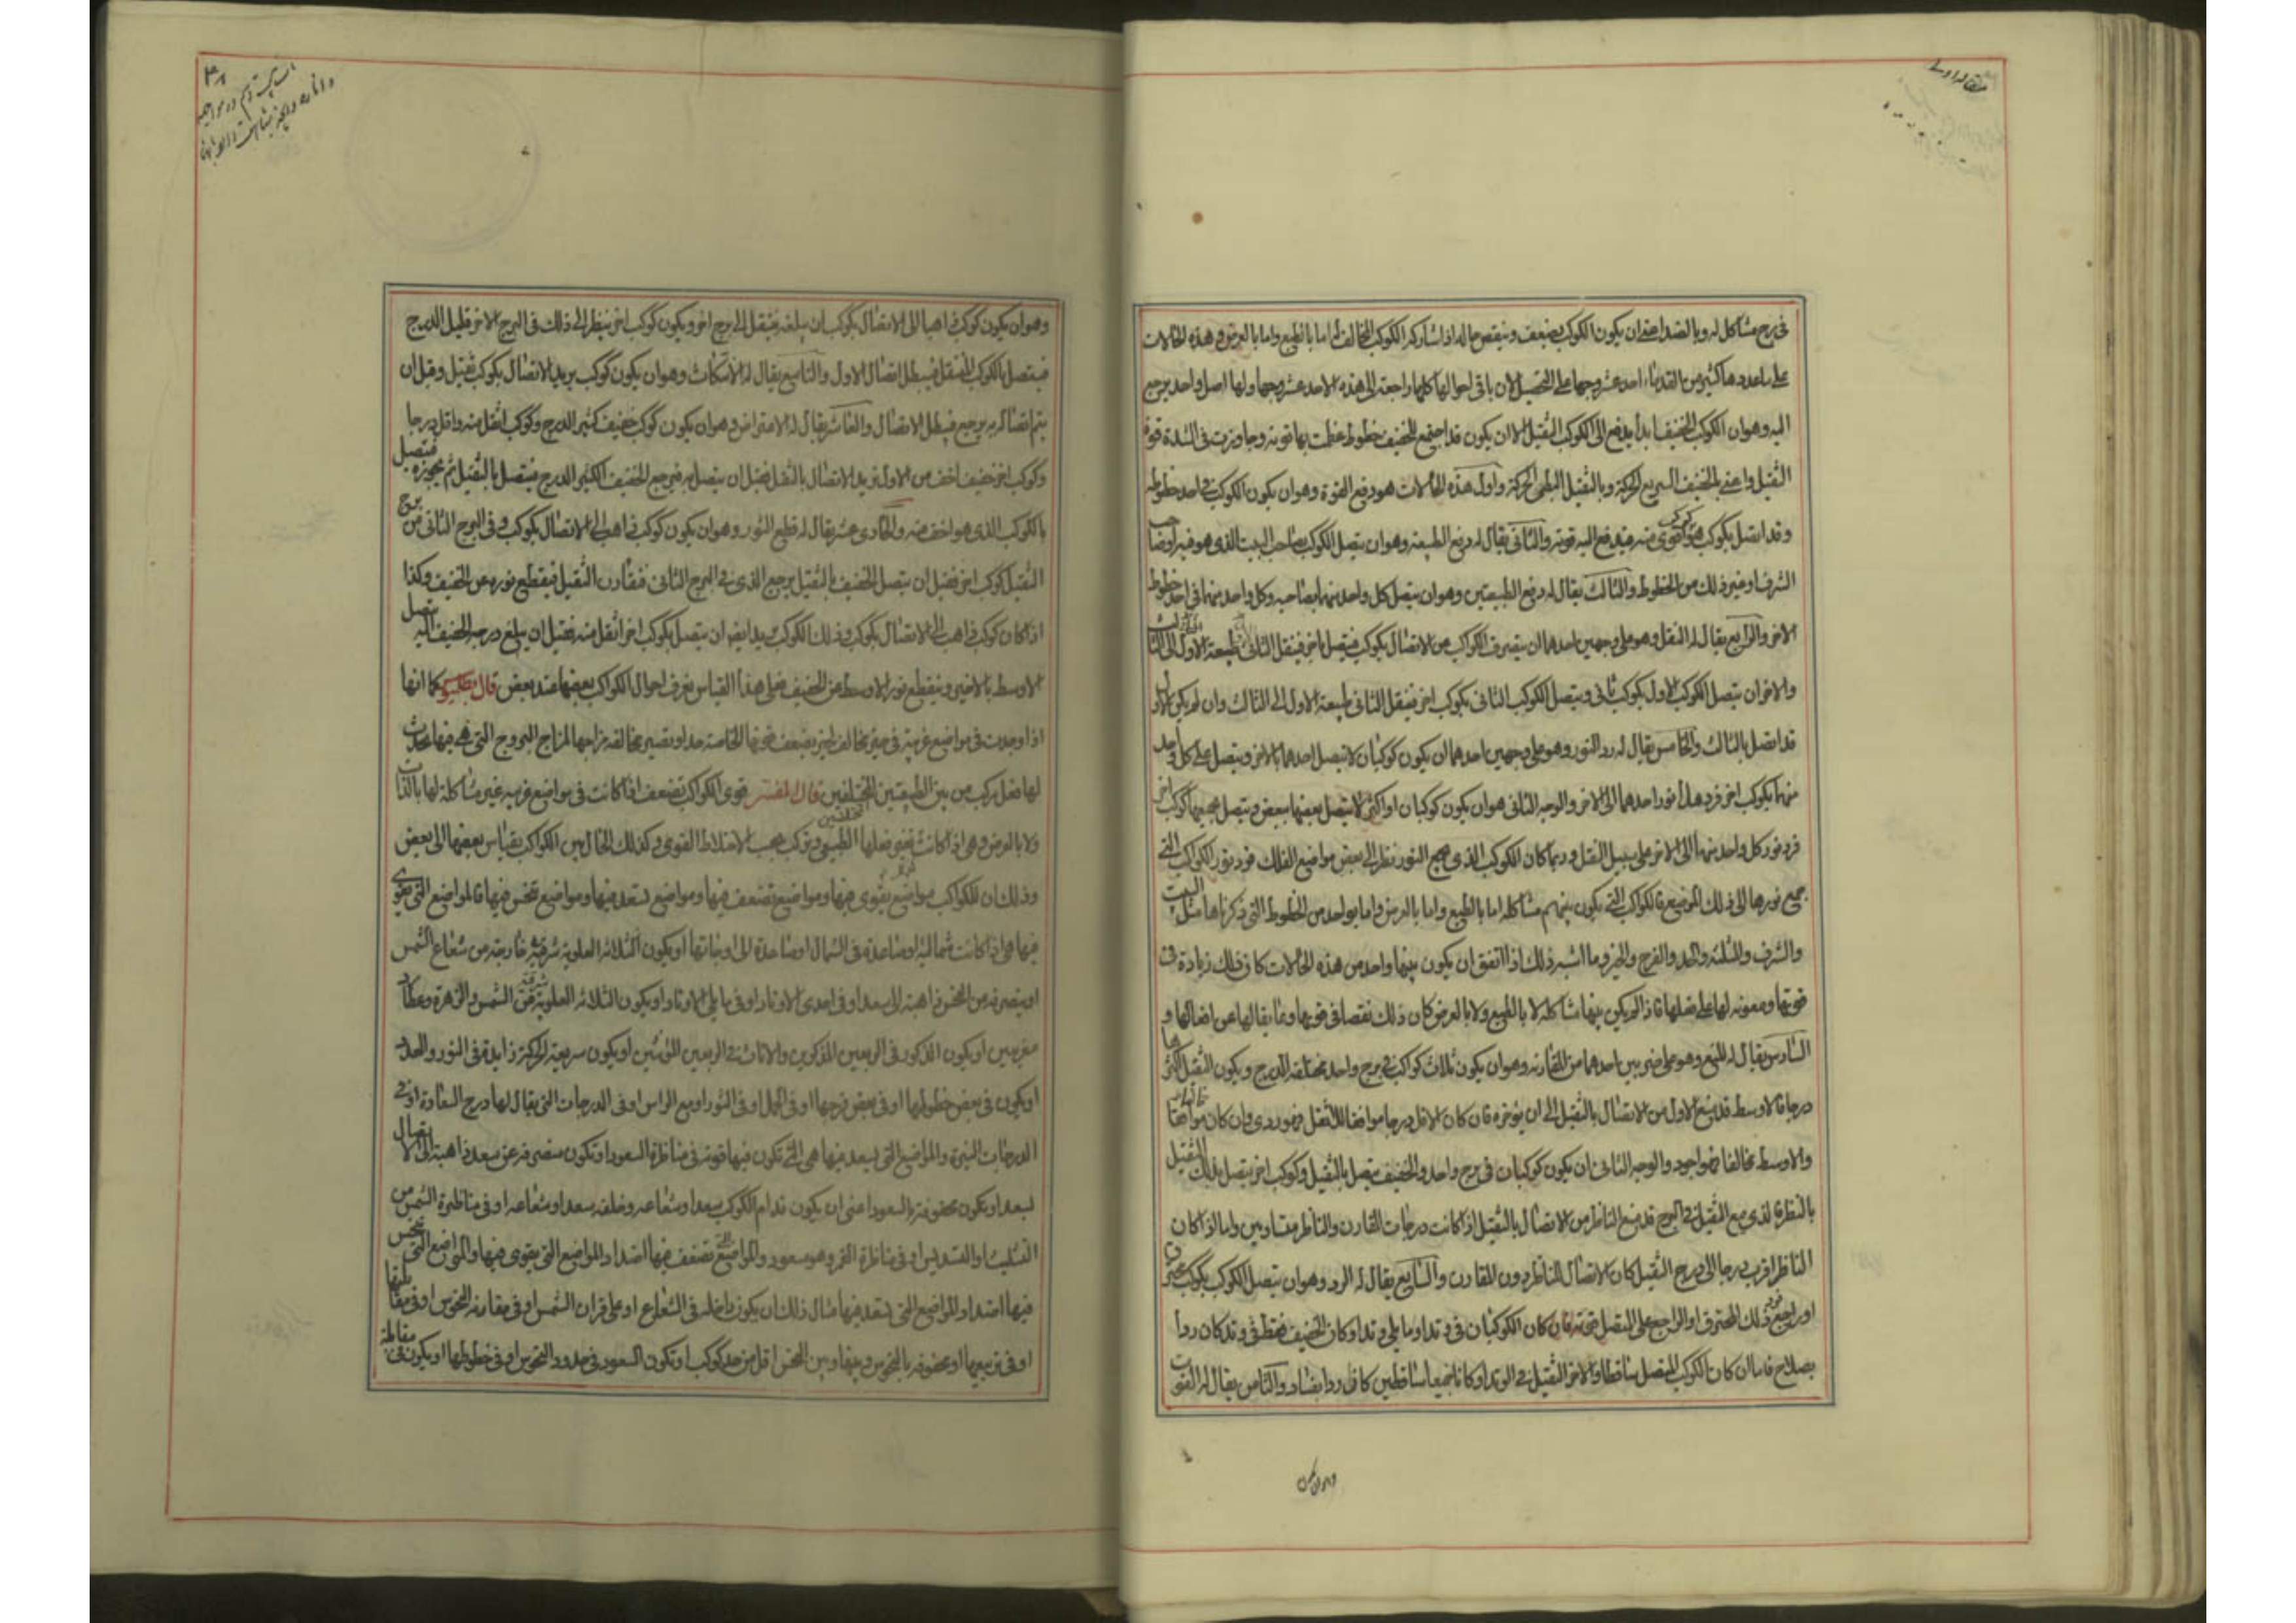 في برج مشاكل له وبالضد اعني ان يكون الكوكب يضعف وينقص حاله اذا شاركه الكوكب المخالف له اما بالطبع واما بالعرض وهذه الحالات
على ما عددها كثير من القدماء احد عشر وجها على التحصيل لان باقي احوالها كلها راجعة الى هذه الاحد عشر وجها ولها اصل واحد يرجع
اليه وهو ان الكوكب الخفيف ابدا يدفع الى الكوكب الثقيل الا ان يكون قد اجتمع للخفيف حظوظ عظمت بها قوته وجاوزت في الشدة قوة
الثقيل واعني بالخفيف السريع الحركة وبالثقيل البطي الحركة واول هذه الحالات هو دفع القوة وهو ان يكون الكوكب في احد حظوظه
وقد اتصل بكوكب هو اقوى منه فيدفع اليه قوته والثاني يقال له دفع الطبيعة وهو ان يتصل الكوكب بصاحب البيت الذي هو فيه او صاحب
الشرف او غير ذلك من الحظوظ والثالث يقال له دفع الطبيعتين وهو ان يتصل كل واحد منهما بصاحبه وكل واحد منهما في احد حظوظ
الاخر والرابع يقال له النقل وهو على وجهين احدهما ان ينصرف الكوكب من الاتصال بكوكب فيتصل باخر فينقل الثاني طبيعة الاول الى الثالث
والاخر ان يتصل الكوكب الاول بكوكب ثاني ويتصل الكوكب الثاني بكوكب اخر فينقل الثاني طبيعة الاول الى الثالث وان لم يكن الاول
قد اتصل بالثالث والخامس يقال له رد النور وهو على وجهين احدهما ان يكون كوكبان لا يتصل احدهما بالاخر ويتصل كل واحد
منهما بكوكب اخر فرد هذا نور احدهما الى الاخر والوجه الثاني هو ان يكون كوكبان او اكثر لا يتصل بعضها ببعض ويتصل جميعها بكوكب اخر
فرد نور كل واحد منهما الى الاخر على سبيل النقل وربما كان الكوكب الذي جمع النور نظر الى بعض مواضع الفلك فرد نور الكواكب التي
جمع نورها الى ذلك الموضع فالكواكب التي يكون بينهم مشاكلة اما بالطبع واما بالعرض واما بواحد من الحظوظ التي ذكرناها مثل البيت
والشرف والمثلثة والحد والفرح والحيز وما اشبه ذلك اذا اتفق ان يكون بينها واحد من هذه الحالات كان ذلك زيادة في
قوتها ومعونة لها على فعلها فاذا لم يكن بينها مشاكلة لا بالطبع ولا بالعرض كان ذلك نقصا في قوتها وعائقا لها عن افعالها و
السادس يقال له المنع وهو على ضربين احدهما من المقارنة وهو ان يكون ثلاث كواكب في برج واحد مختلفة الدرج ويكون الثقيل اكثرها
درجا فالاوسط قد يمنع الاول من الاتصال بالثقيل الى ان يؤخره فان كان الاقل درجا موافقا للاثقل فهو ردي وان كان موافقا
والاوسط مخالفا فهو اجود والوجه الثاني ان يكون كوكبان في برج واحد والخفيف يتصل بالثقيل وكوكب اخر يتصل بذلك الثقيل
بالنظر فالذي مع الثقيل في البرج قد يمنع الناظر من الاتصال بالثقيل اذا كانت درجات المقارن والناظر متساويين واما اذا كان
الناظر اقرب درجا الى درج الثقيل كان الاتصال للناظر دون المقارن والسابع يقال له الرد وهو ان يتصل الكوكب بكوكب محترق
او راجع فيرد ذلك المحترق او الراجع على المتصل قوته فان كان الكوكبان في وتد او ما يلي وتد او كان الخفيف فقط في وتد كان ردا
بصلاح فاما ان كان الكوكب المتصل ساقطا والاخر الثقيل في الوتد او كانا جميعا ساقطين كان ردا بفساد والثامن يقال له الفوت
وهو ان يكون
وهو ان يكون كوكب ذاهبا الى الاتصال بكوكب ان يبلغه فينتقل الى برج اخر ويكون كوكب اخر ينظر الى ذلك في البرج الاخر قليل الدرج
فيتصل بالكوكب المنتقل فيبطل اتصال الاول والتاسع يقال له الانتكاث وهو ان يكون كوكب يريد الاتصال بكوكب ثقيل وقبل ان
يتم اتصاله به يرجع فيبطل الاتصال والعاشر يقال له الاعتراض وهو ان يكون كوكب خفيف كثير الدرج وكوكب اثقل منه واقل درجا
وكوكب اخر خفيف اخف من الاول يريد الاتصال بالثقيل فقبل ان يتصل به فيرجع الخفيف الكثير الدرج فيتصل بالثقيل ثم يجوزه فيتصل
بالكوكب الذي هو اخف منه والحادي عشر يقال له قطع النور وهو ان يكون كوكب ذاهب الى الاتصال بكوكب وفي البرج الثاني من برج
الثقيل كوكب اخر فقبل ان يتصل الخفيف بالثقيل يرجع الذي في البرج الثاني فقارن الثقيل فيقطع نوره عن الخفيف وكذا
اذا كان كوكب ذاهب الى الاتصال بكوكب وذلك الكوكب يريد ايضا ان يتصل بكوكب اخر اثقل منه فقبل ان يبلغ درجه الخفيف اليه يتصل
الاوسط بالاخير وينقطع نور الاوسط عن الخفيف فعلى هذا القياس تعرف احوال الكواكب بعضها عند بعض قال بطلميوس كما انها
اذا وجدت في مواضع غريبة في حيز مخالف لحيزها يضعف قوتها الخاصة جدا ويصير مخالفة مزاجها لمزاج البروج التي هي فيها تحدث
لها فعل مركب من بين الطبيعتين المختلفين قال المفسر قوى الكواكب تضعف اذا كانت في مواضع غريبة غير مشاكلة لها بالذات
ولا بالعرض وهي اذا كانت تغير فعلها الطبيعي وتركب بحسب الاختلاط القوى وكذلك الحال بين الكواكب بقياس بعضها الى بعض
وذلك ان للكواكب مواضع يقوى فيها ومواضع تضعف فيها ومواضع تسعد فيها ومواضع تنحس فيها فالمواضع التي تقوى
فيها هي اذا كانت شمالية او صاعدة في الشمال او صاعدة الى اوجاتها او يكون الثلاثة العلوية شرقية خارجة من شعاع الشمس
او ينصرفه من النحس ذاهبة الى سعد او في احدى الاوتاد او في ما يلي الاوتاد او يكون الثلاثة العلوية شرقية من الشمس والزهرة وعطارد
مغربيين او يكون الذكور في الربعين المذكرين والاناث في الربعين المؤنثين او يكون سريعة الحركة زايدة في النور والعدد
او يكون في بعض حظوظها او في بعض فرحها او في الحمل او في الثور او مع الراس او في الدرجات التي يقال لها درج السعادة او في
الدرجات النيرة والمواضع التي يسعد فيها هي التي تكون فيها قوته في مناظرة السعود او تكون منصرفة عن سعد ذاهبة الى الاتصال
بسعد او تكون محفوفة بالسعود اعني ان يكون قدام الكوكب سعد او شعاعه وخلفه سعد او شعاعه او في مناظرة الشمس من
التثليث او التسديس او في مناظرة القمر وهو مسعود والمواضع التي تضعف فيها اضداد المواضع التي يقوى فيها والمواضع التي تنحس
فيها اضداد المواضع التي تسعد فيها مثال ذلك ان يكون داخله في الشعاع او على قران الشمس او في مقارنة النحوس او في مقابلتها
او في تربيعها او محفوفة بالنحوس وبينها وبين النحس اقل من حد كوكب او تكون السعود في حدود النحوس او في حظوظها او يكون في مقابلة